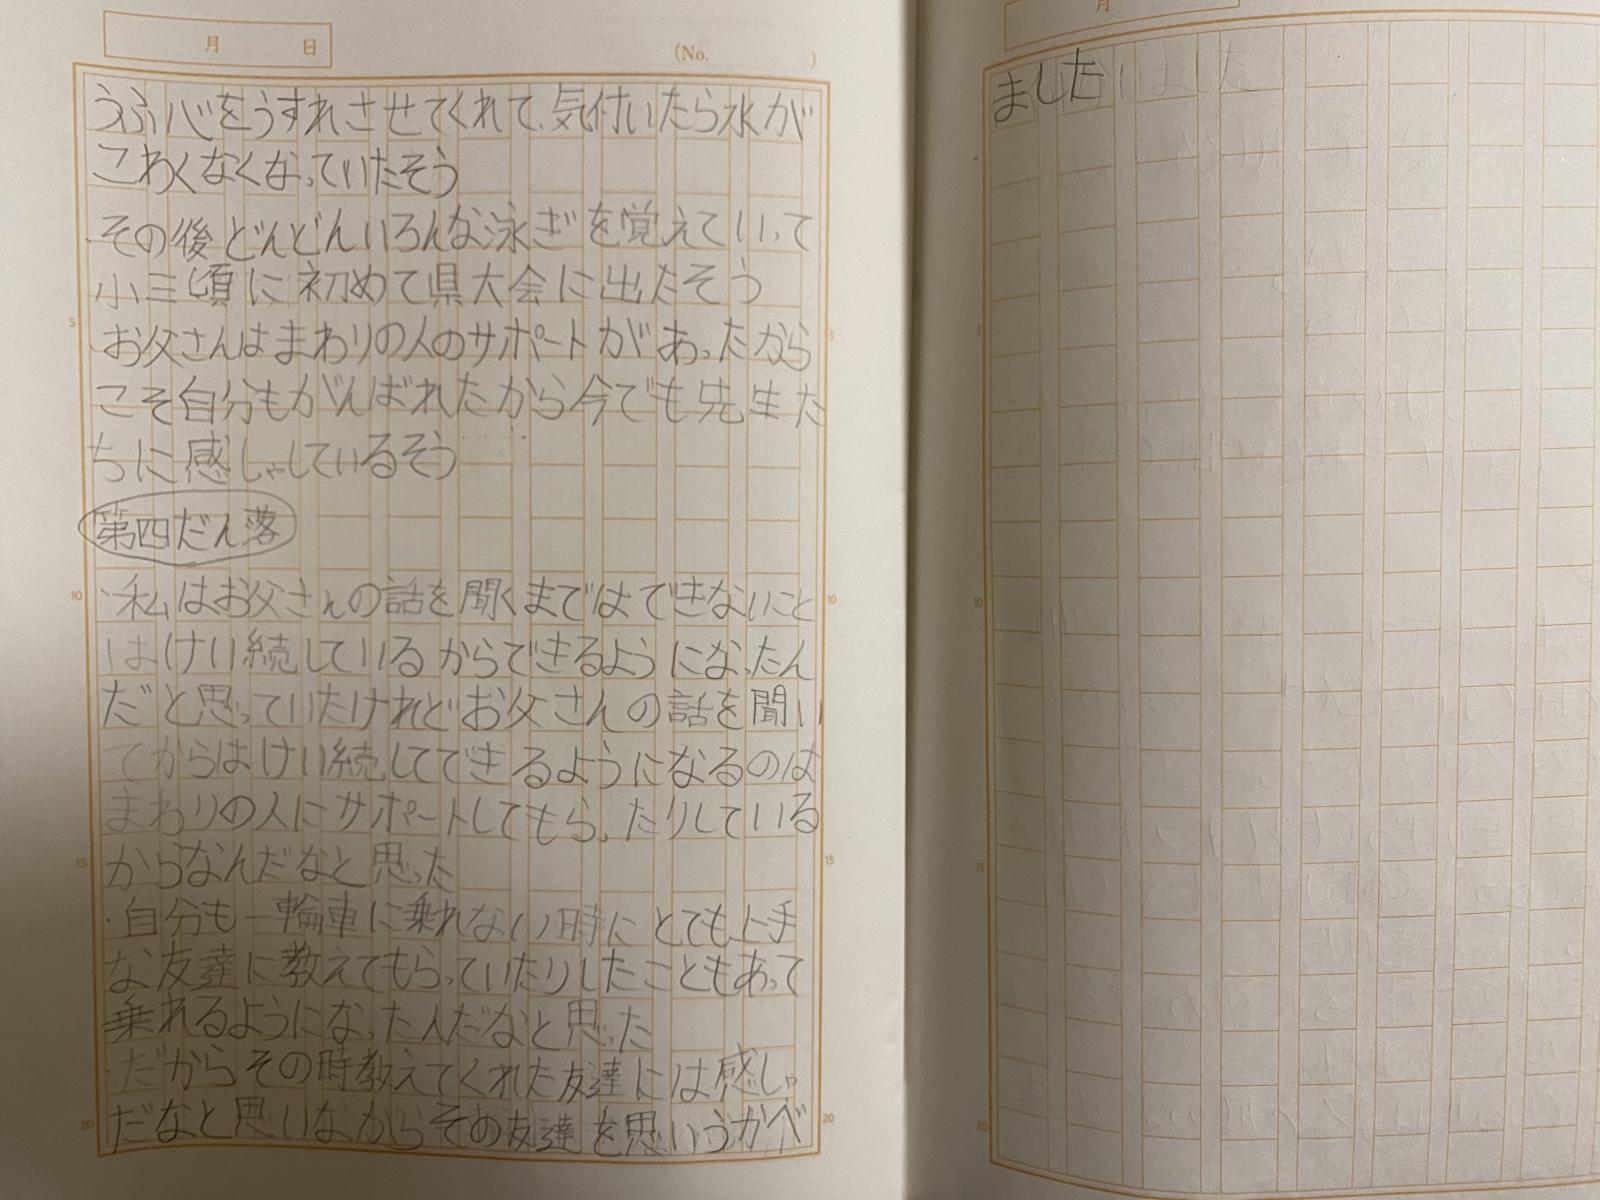 月 日
(No. )
うふ心をうすれさせてくれて、気付いたら水が
こわくなくなっていたそう
・その後どんどんいろんな泳ぎを覚えていって
小三頃に初めて県大会に出たそう
お父さんはまわりの人のサポートがあったから
こそ自分もがんばれたから今でも先生た
ちに感しゃしているそう
第四だん落
・私はお父さんの話を聞くまではできないこと
はけい続しているからできるようになったん
だと思っていたけれどお父さんの話を聞い
てからはけい続してできるようになるのは
まわりの人にサポートしてもらったりしている
からなんだなと思った
・自分も一輪車に乗れない時にとても上手
な友達に教えてもらっていたりしたこともあって
乗れるようになったんだなと思った
・だからその時教えてくれた友達には感しゃ
だなと思いながらその友達を思いうかべ
5
10
15
20
5
10
15
20
月
ました
5
10
15
20